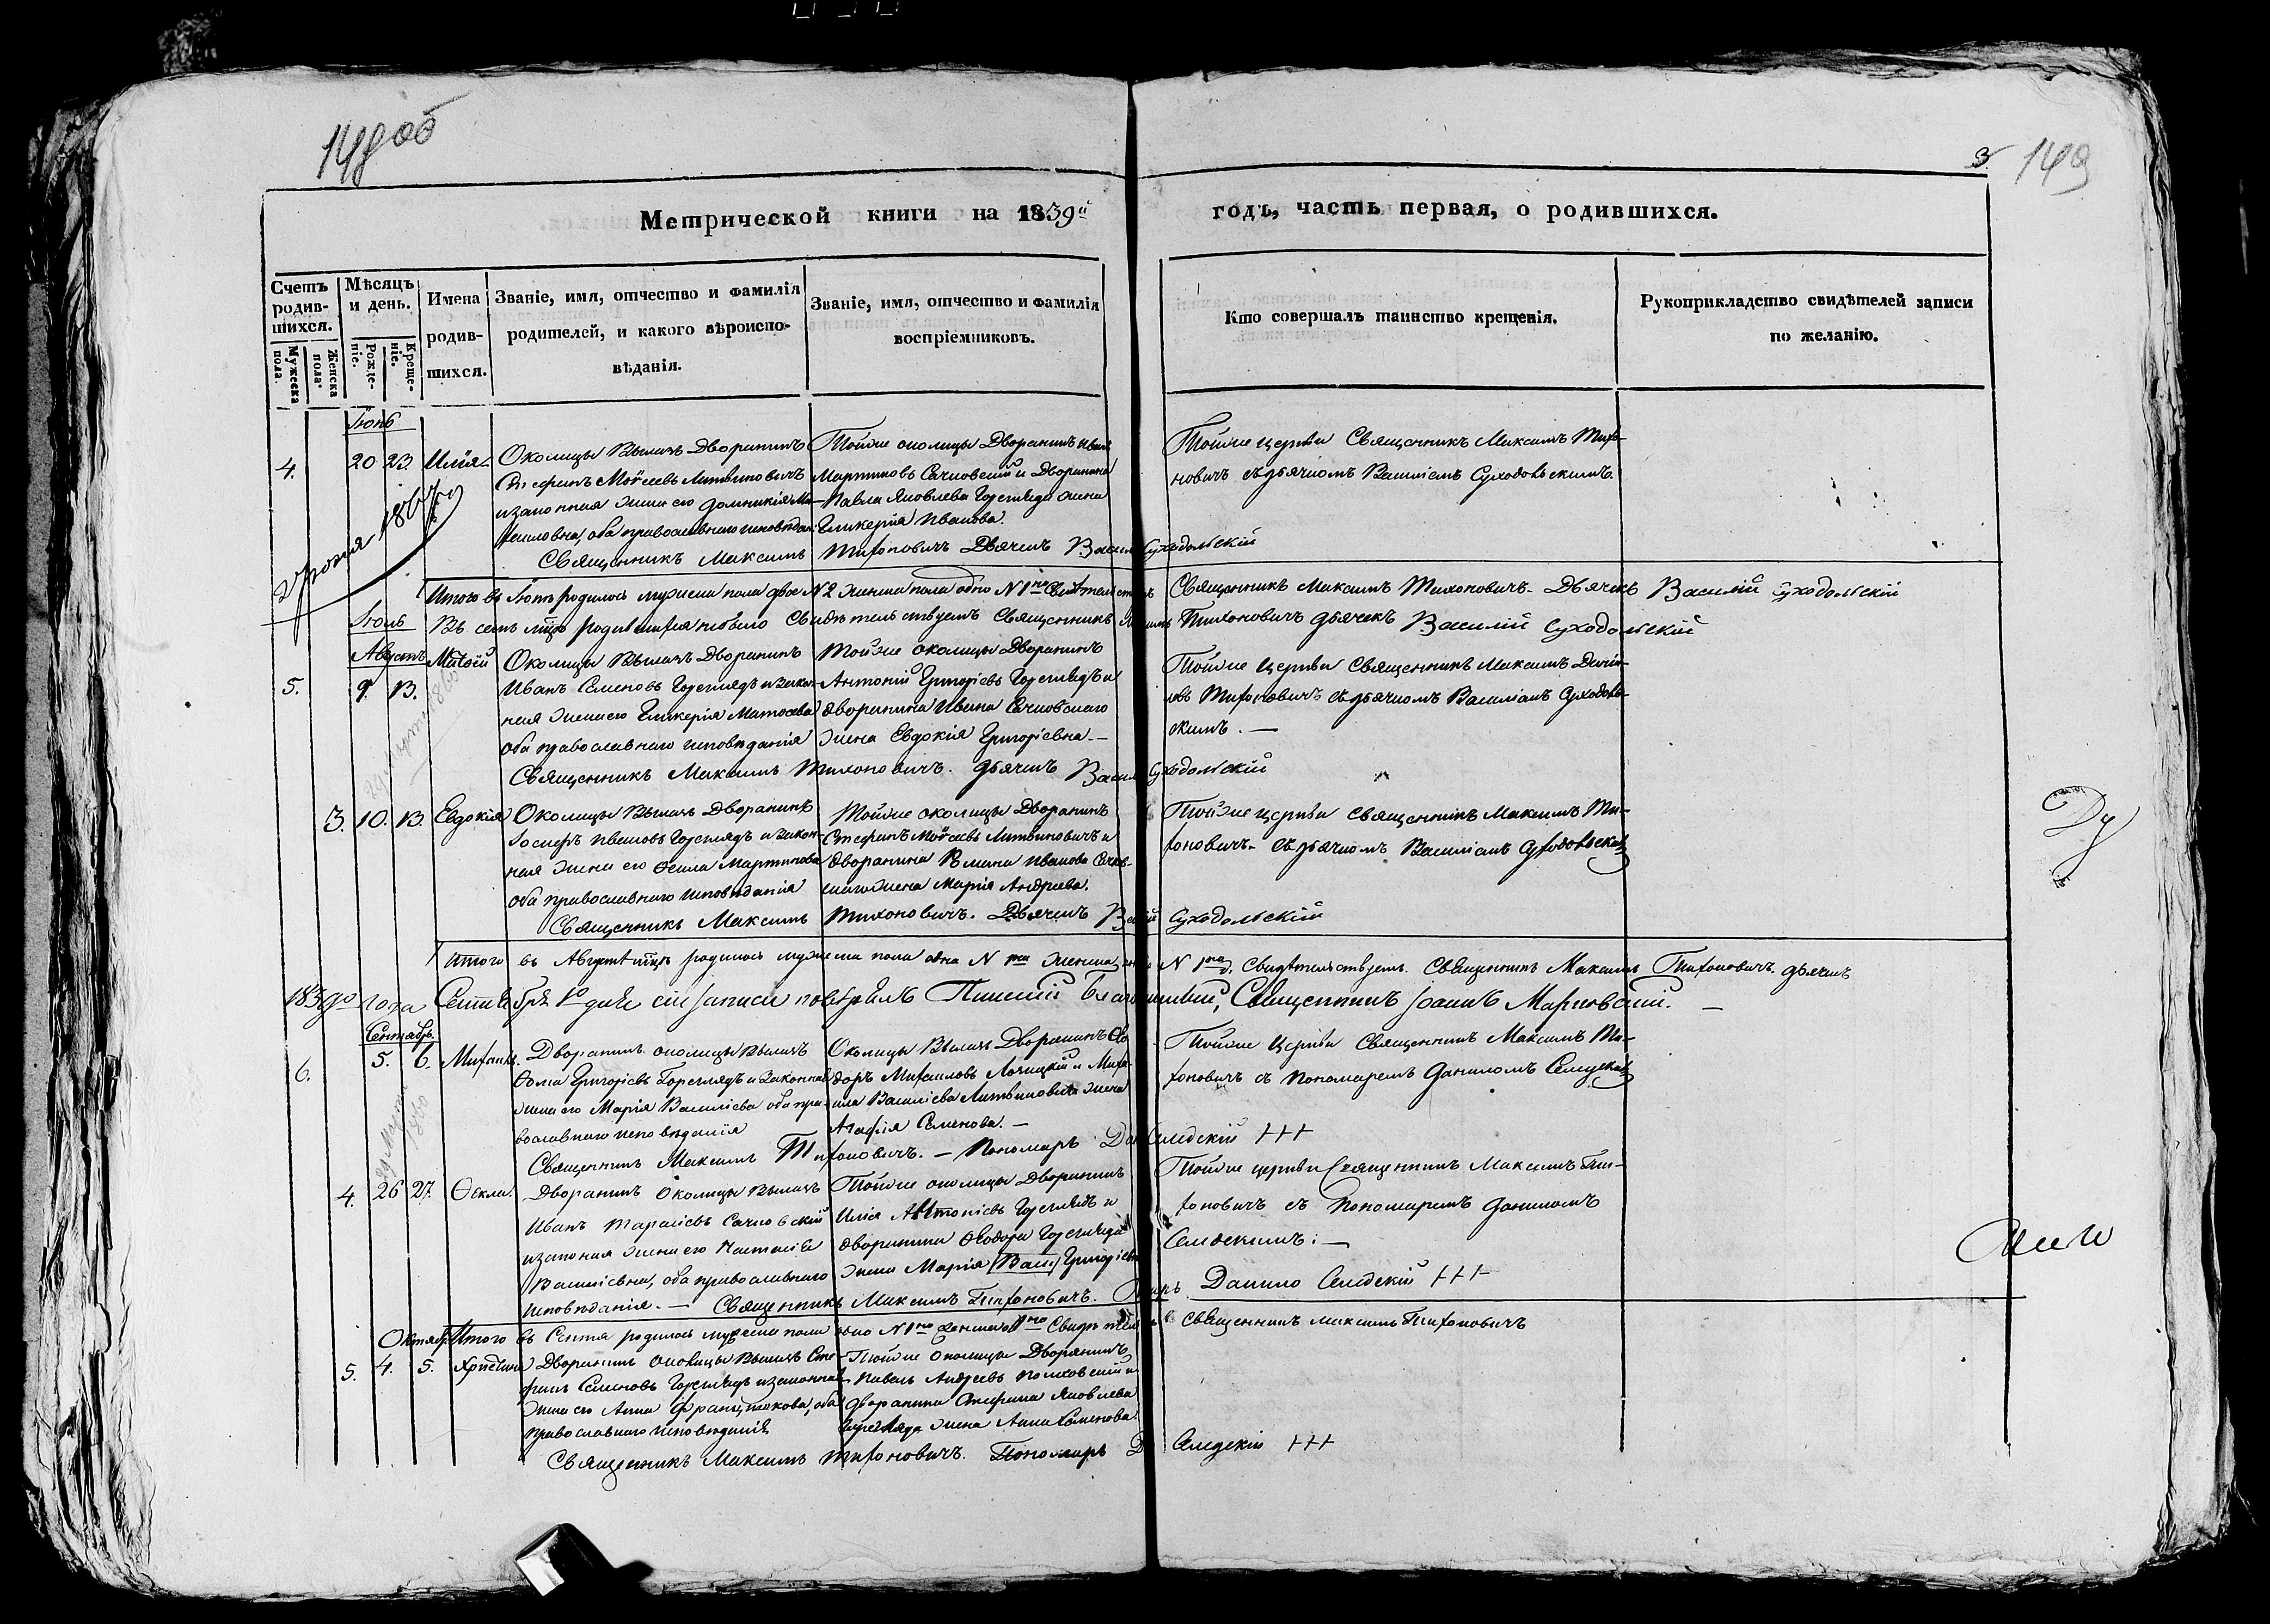 148об
3 149
Метрической книги на 1839й годъ, часть первая, о родившихся.
Счетъ родившихся.
Мужеска пола.
Женска пола.
Мѣсяцъ и день.
Рожденіе.
Крещеніе.
Имена родившихся.
Званіе, имя, отчество и фамилія
родителей, и какого вѣроиспо-
вѣданія.
Званіе, имя, отчество и фамилія
воспріемниковъ.
Кто совершалъ таинство крещенія.
Рукоприкладство свидѣтелей записи
по желанію.
Іюнь
4. 20 23. Илія
Околицы Вылазъ Дворянинъ
Стефанъ Моѵсеевъ Литвиновичъ
и законная жена его Домникія Ми-
хайловна, оба православнаго исповѣдан:
Тойже околицы Дворянинъ Иванъ
Мартиновъ Сачковскій и Дворянина
Павла Яковлева Горегляда жена
Гликерія Иванова.
Тойже церкви Священникъ Максимъ Тихо-
новичъ съ дьячкомъ Василіемъ Суходольскимъ.
Священникъ Максимъ Тихоновичъ Дьячекъ Василій Суходольскій
Итого въ Іюнѣ родилось мужеска пола двое N 2 женска пола одно N 1но Свидѣтельств Священникъ Максимъ Тихоновичъ- Дьячекъ Василій Суходольскій
Іюль
Въ семъ мцѣ родившихся небыло Свидѣтельствуемъ Священникъ Максимъ Тихоновичъ дьячекъ Василій Суходольскій
Августъ
5. 9. 13. Матѳій
Околицы Вылазъ Дворянинъ
Иванъ Семеновъ Гореглядъ и закон-
ная жена его Гликерія Матѳеева
оба православнаго исповѣданія
Тойже околицы Дворянинъ
Антоній Григоріевъ Гореглядъ и
дворянина Ивана Сачковскаго
жена Евдокія Григоріевна.-
Тойже церкви Священникъ Максимъ Дани-
ловъ Тихоновичъ съ дьячкомъ Василіемъ Суходоль-
скимъ. —
Священникъ Максимъ Тихоновичъ. дьячекъ Василій Суходольскій
3. 10. 13. Евдокія
Околицы Вылазъ Дворянинъ
Іосифъ Ивановъ Гореглядъ и закон-
ная жена его Ѳекла Мартинова
оба православнаго исповѣданія
Тойже околицы Дворянинъ
Стефанъ Моѵсеевъ Литвиновичъ и
дворянина Романа Иванова Сачков-
скаго жена Марія Андреева.
Тойже церкви Священникъ Максимъ Ти-
хоновичъ- съ дьячкомъ Василіемъ Суходольским
Священникъ Максимъ Тихоновичъ. Дьячекъ Васій Суходольскій
Итого въ Августѣ мцѣ родилось мужеска пола одна N 1на женска пола N 1на. Свидѣтельствуемъ. Священникъ Максимъ Тихоновичъ. дьячекъ
1839го года Сентября 1го дня сіи записи повѣрялъ Пинскій Благочинный, Священникъ Іоаннъ Марковскій. —
Сентябрь.
6. 5. 6. Михаилъ.
Дворянинъ околицы Вылазъ
Ѳома Григоріевъ Гореглядъ и законная
жена его Марія Василіева оба пра-
вославнаго исповѣданія
Околицы Вылазъ Дворянинъ Ѳео-
доръ Михаиловъ Лозицкій и Миха-
ила Василіева Литвиновича жена
Агафія Семенова. —
Тойже Церкви Священникъ Максимъ Ти-
хоновичъ съ Пономаремъ Даниломъ
Священникъ Максимъ Тихоновичъ. — Пономарь +++
4. 26 27. Ѳекла.
Дворянинъ Околицы Вылазъ
Иванъ Тарасіевъ Сачковскій
и законная жена его Настасія
Василіевна, оба православнаго
исповѣданія. —
Тойже околицы Дворянинъ
Илія Антоніевъ Гореглядъ и
дворянина Ѳеодора Горегляда
жена Марія (Васи) Григоріева
Тойже церкви Священникъ Максимъ Тихо-
новичъ съ Пономаремъ Даниломъ
Священникъ Максимъ Тихоновичъ. Данило +++
Октябрь
Итого въ Сентя родилось мужеска пола N 1но женска 1но Священникъ Максимъ Тихоновичъ
5. 4. 5. Христина
Дворянинъ Околицы Вылазъ Сте-
фанъ Семеновъ Гореглядъ и законная
жена его Анна Францискова, оба
православнаго исповѣданія
Тойже Околицы Дворянинъ
Павелъ Андреевъ Полховскій и
дворянина Стефана Яковлева
Горегляда жена Анна Семенова
Священникъ Максимъ Тихоновичъ. Пономарь +++